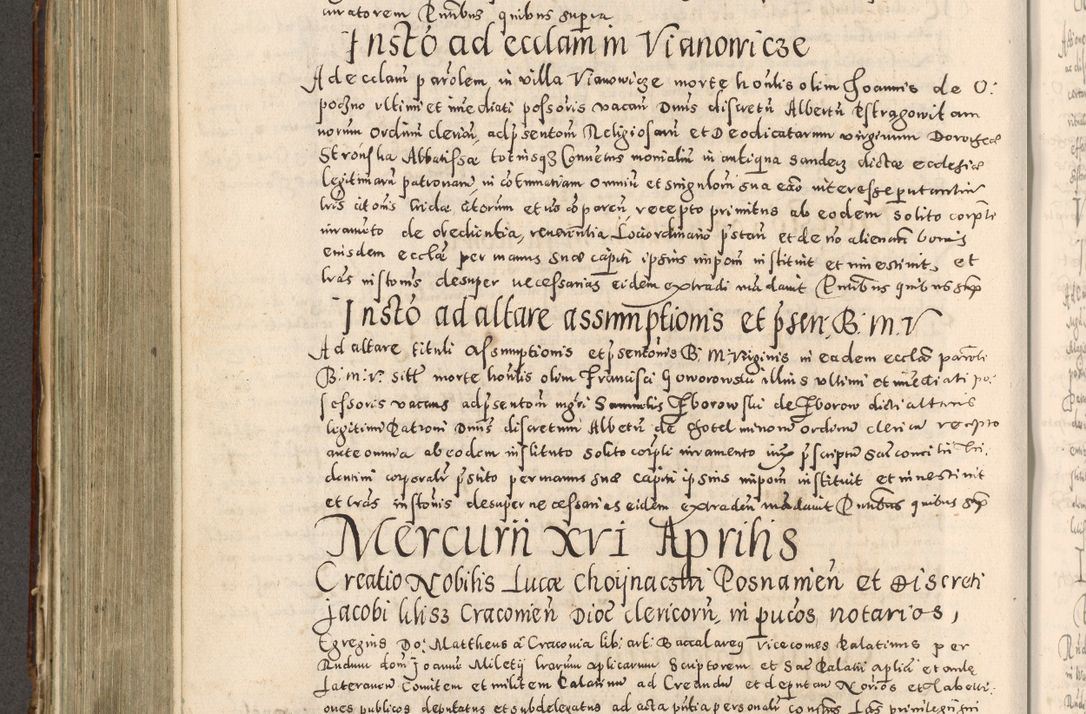 curatorem Pntibus quibus supra
Insto ad ecclam in Vianowicze
Ad ecclam parolem in villa Vianowicze morte honlis olim Joannis de O:
poczno vltimi et imediati possoris vacan Dnus discretu Albertu Pstragowit am
norum Ordinu clericu, ad psentom Religiosarum et Deo dicatarum virginum Dorothea
Stronska Abbatissæ totiusq Conuentus monialiu in antiqua Sandecz dictæ ecclesiæ
legitimaru patronaru in cotumatiam omniu et singuloru sua eao interesse putantiu
lris citonis cridæ citorum et no comparen, recepto primitus ab eodem solito corpli
iuramto de obedientia, reuerentia Lociordinario pstan et de no alienan bonis
eiusdem ecclæ per manus suæ capiti ipsius impom instituit et inuestiuit, et
lras instonis desuper necessarias eidem extradi madauit Pntibus quibus sup
Insto ad altare assumptionis et psen: B. M. V
Ad altare tituli Assumptionis et psentonis B: M: Virginis in eadem eccla paroli
B: M: V: sitt morte honlis olim Francisci Goworowski illius vltimi et imediati pos
sessoris vacans ad psentom mgci Samuelis Zborowski de Zborow dicti altaris
legitimi Patroni Dnus discretum Albertu de Chotel minoru ordinu clericu recepto
ante omnia ab eodem instituto solito corpli iuramento iux pscriptu Sac concilii Tri
dentini corporalr pstito per manus suæ capiti ipsius impom instituit et inuestiuit
et lras instonis desuper necessarias eidem extraden madauit Pntibus quibus sup
Mercurii XVI Aprilis
Creatio Nobilis Lucæ Choijnaczki Posnanien et Discreti
Jacobi lilisz Cracouien Dioc clericoru, in pucos notarios,
Egregius Do: Mattheus a Cracouia lib: art: Baccalareus Vicecomes Palatinus per
Rndum dom Joanne Miletij lrarum aplicarum Scriptorem et Sac Palatii aplici et aulæ
Lateranen Comitem et militem Palatinu ad Creandu et deputan Norios et tabelli:
ones publicos deputatus et subdelegatus ad acta pntia personalr constus Lras priuilegii sui